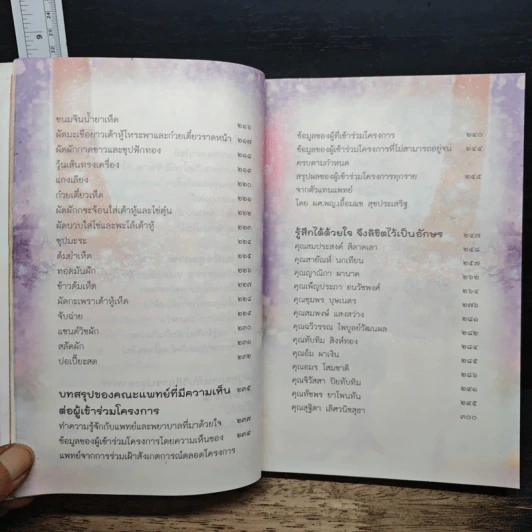 ขนมจีนน้ำยาเห็ด ๒๑๖
ผัดมะเขือยาวเต้าหู้โหระพาและก๋วยเตี๋ยวราดหน้า ๒๑๗
ผัดผักกาดขาวและซุปฟักทอง ๒๑๘
วุ้นเส้นทรงเครื่อง
แกงเลียง
ก๋วยเตี๋ยวเห็ด
ผัดผักกระจ้อนใส่เต้าหู้และไข่ตุ๋น
ผัดบวบใส่ไข่และพะโล้เต้าหู้
ซุปมะระ
ต้มยำเห็ด
ทอดมันผัก
ข้าวต้มเห็ด ๒๒๗
ผัดกะเพราเต้าหู้เห็ด ๒๒๘
จับฉ่าย
แซนด์วิชผัก ๒๓๐
สลัดผัก ๒๓๑
ปอเปี๊ยะสด ๒๓๒
บทสรุปของคณะแพทย์ที่มีความเห็น ๒๓๕
ต่อผู้เข้าร่วมโครงการ
ทำความรู้จักกับแพทย์และพยาบาลที่มาด้วยใจ ๒๓๗
ข้อมูลของผู้เข้าร่วมโครงการโดยความเห็นของ
แพทย์จากการร่วมเฝ้าสังเกตการณ์ตลอดโครงการ
ข้อมูลของผู้ที่เข้าร่วมโครงการ ๒๔๐
ข้อมูลของผู้เข้าร่วมโครงการที่ไม่สามารถอยู่จน ๒๔๔
ครบตามกำหนด
สรุปผลของผู้เข้าร่วมโครงการทุกราย ๒๔๕
จากตัวแทนแพทย์
โดย ผศ.พญ.เอื้อมแข สุขประเสริฐ
รู้สึกได้ด้วยใจ จึงลิขิตไว้เป็นอักษร ๒๔๗
คุณสมประสงค์ สีลาดเลา ๒๔๘
คุณสายัณห์ นกเทียน ๒๕๗
คุณญาณิกา ผานาค ๒๖๒
คุณเพ็ญประภา ธนวัชพงศ์ ๒๖๔
คุณชุมพร บุพเนตร ๒๗๖
คุณสมพงษ์ แสงสว่าง ๒๘๑
คุณฉวีวรรณ ไพบูลย์วัฒนผล ๒๘๒
คุณทับทิม สิงห์ทอง ๒๘๔
คุณอ้ม ผาเงิน ๒๘๕
คุณอมร โสมชาติ ๒๘๖
คุณจิวัสสา ปิยทับทิม
คุณทัชพร ยาโพนทัน ๒๙๕
คุณสุฐิตา เลิศวนิชสุธา ๓๐๐